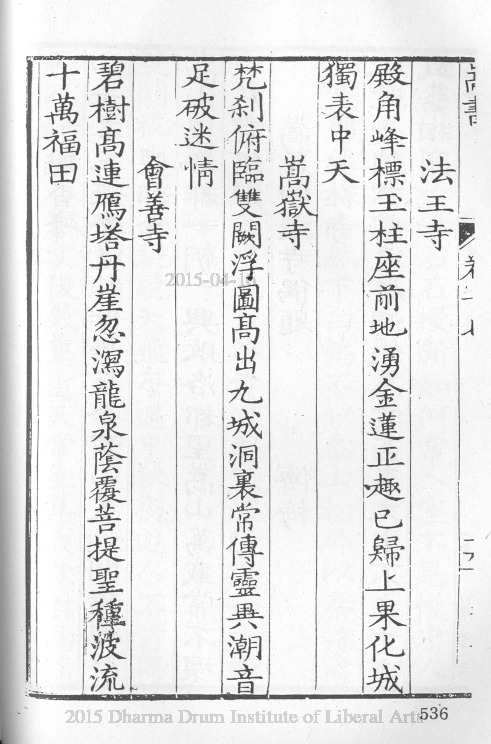 嵩書
法王寺
殿角峰標玉柱座前地湧金蓮正趣已歸上果化城
獨表中天
嵩嶽寺
梵刹俯臨雙闕浮圖髙出九城洞裏常傳靈異潮音
足破迷情
會善寺
碧樹髙連鴈塔丹崖忽瀉龍泉蔭覆菩提聖種波流
十萬福田
2015-04-10
2015 Dharma Drum Institute of Liberal Arts
536